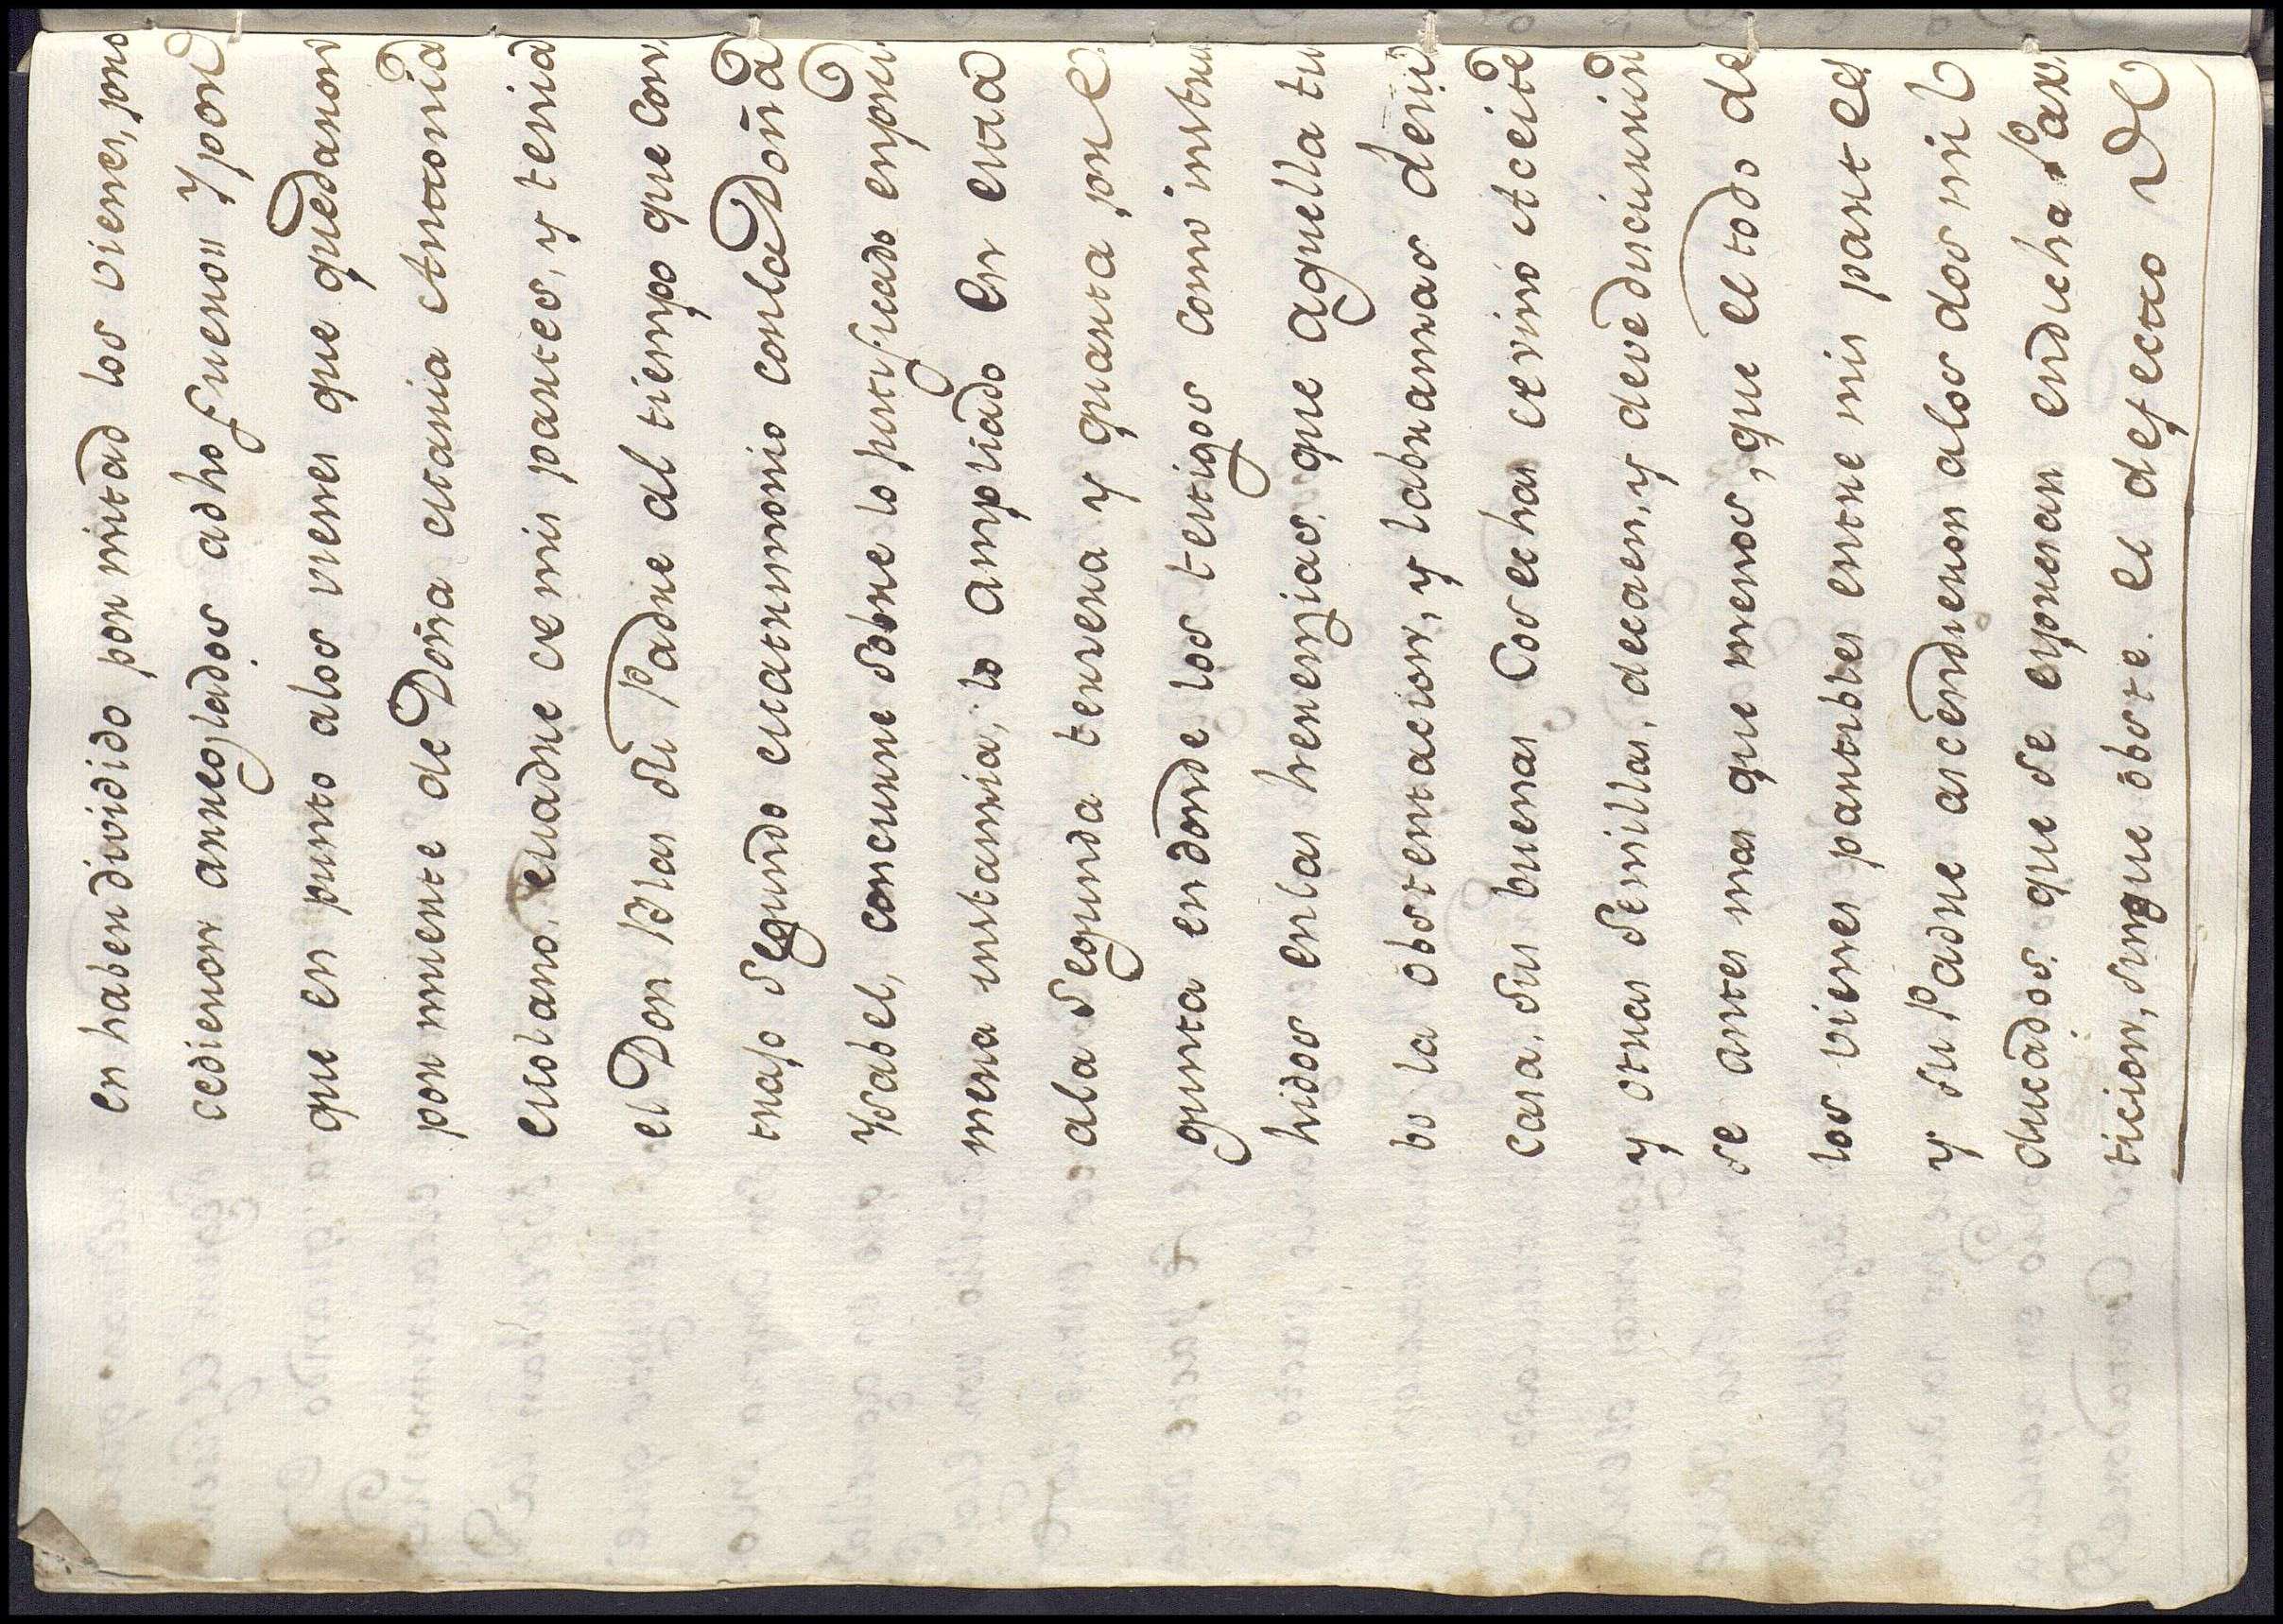 en haber dividido por mitad los vienes, pro
cedieron arreglados a dho Fuero Y por
que en punto a los vienes que quedaron
por muerte de Doña Maria Antonia
Molano, Madre de mis partes, y tenia
el Don Blas su Padre al tiempo que con
trajo segundo Matrimonio con la Doña
Ysabel, concurre sobre lo justificado en pri
mera instancia, lo ampliado en esta
a la segunda tercera y quarta pre
gunta en donde los testigos como instru
hidos en las herenzias que aquella tu
bo la obstentacion, y labranzas de su
casa, sus buenas Cosechas de vino Aceite
y otras semillas, decaen, y deve discurrir
se antes mas que menos, que el todo de
los vienes partibles entre mis partes
y su Padre ascendieron a los dos mil
ducados que se expresan en dicha Par
ticion, sin que obste el defecto de